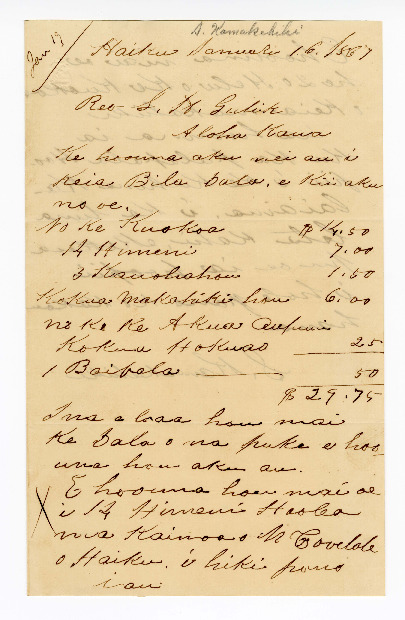 S. Kamakahiki
Jan 19
Haiku Ianuari 16. 1867
Rev. L. H. Gulik
Aloha Kaua
Ke hoouna aku nei au i
keia Bila Dala, e Kii aku
no oe.
No Ke Kuokoa $ 14.50
14 Himeni 7.00
3 Kauohahou 1.50
Kokua Makahiki hou 6.00
no ke Ke Akua Aupuni
Kokua Hokuao 25
1 Baibala 50
$ 29.75
Ina e loaa hou mai
ke Dala o na puke e hoo
una hou aku au.
X E hoouna hou mai oe
i 14 Himeni Hoolea
ma Kainoa o M
o Haiku. i hiki pono
iau